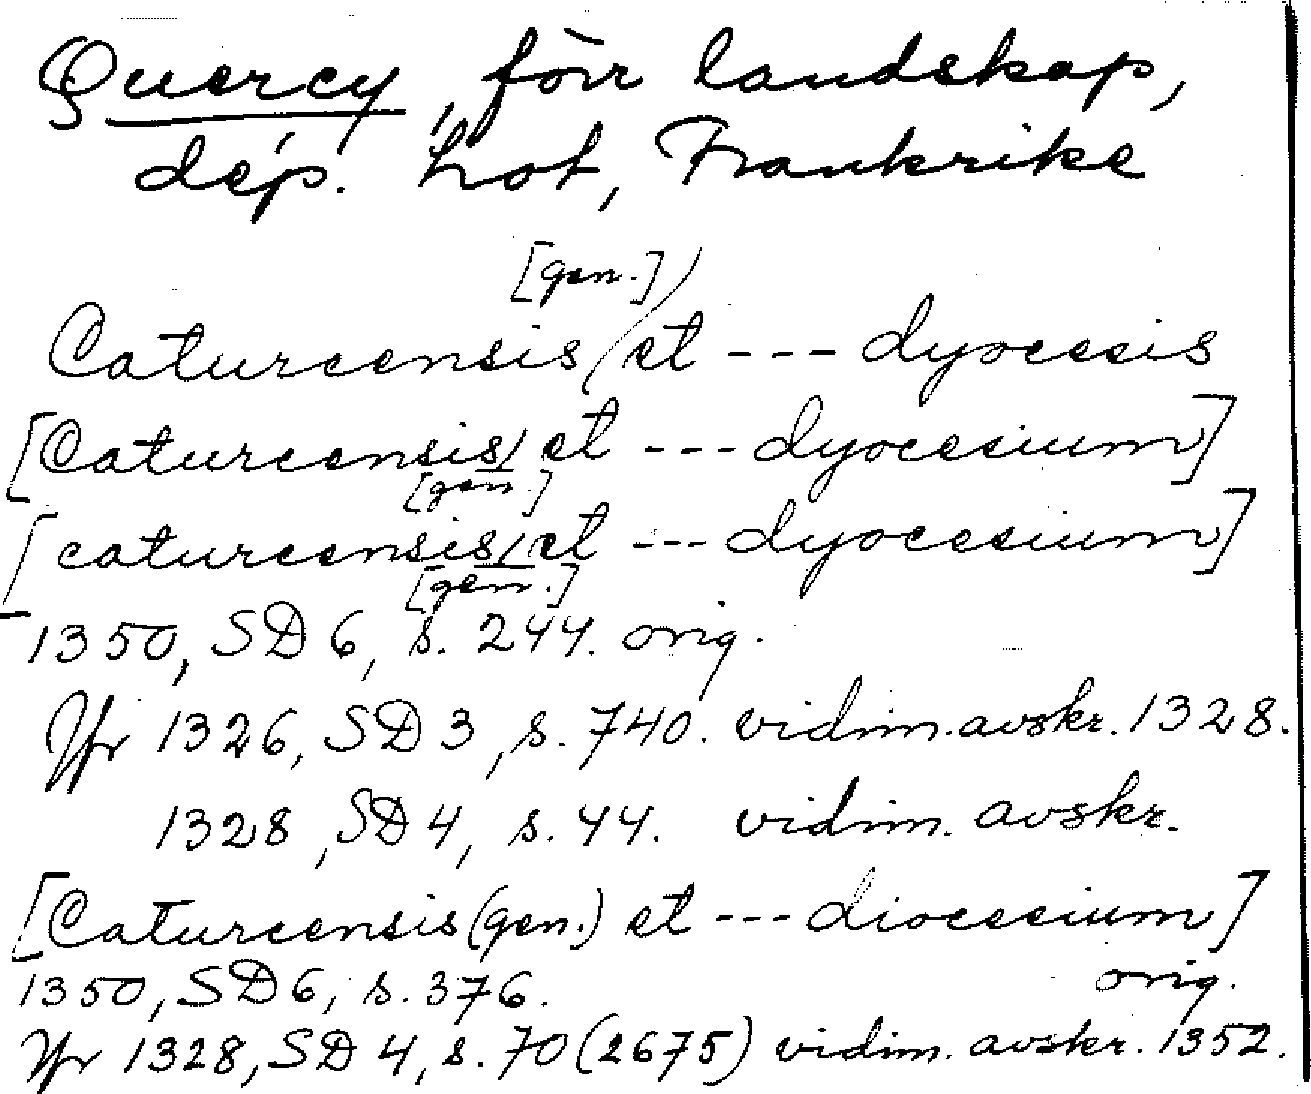 Quercy, förr landskap,
dép. Lot, Frankrike
[gen.]
Caturcensis et --- dyocesis
[Caturcensis et --- dyocesium]
[gen.]
[caturcensis et --- dyocesium]
[gen.]
1350, SD 6, s. 244. orig.
Jfr 1326, SD 3, s. 740. vidim. avskr. 1328.
1328, SD 4, s. 44. vidim. avskr.
[Caturcensis (gen.) et --- diocesium]
1350, SD 6, s. 376. orig.
Jfr 1328, SD 4, s. 70 (2675) vidim. avskr. 1352.